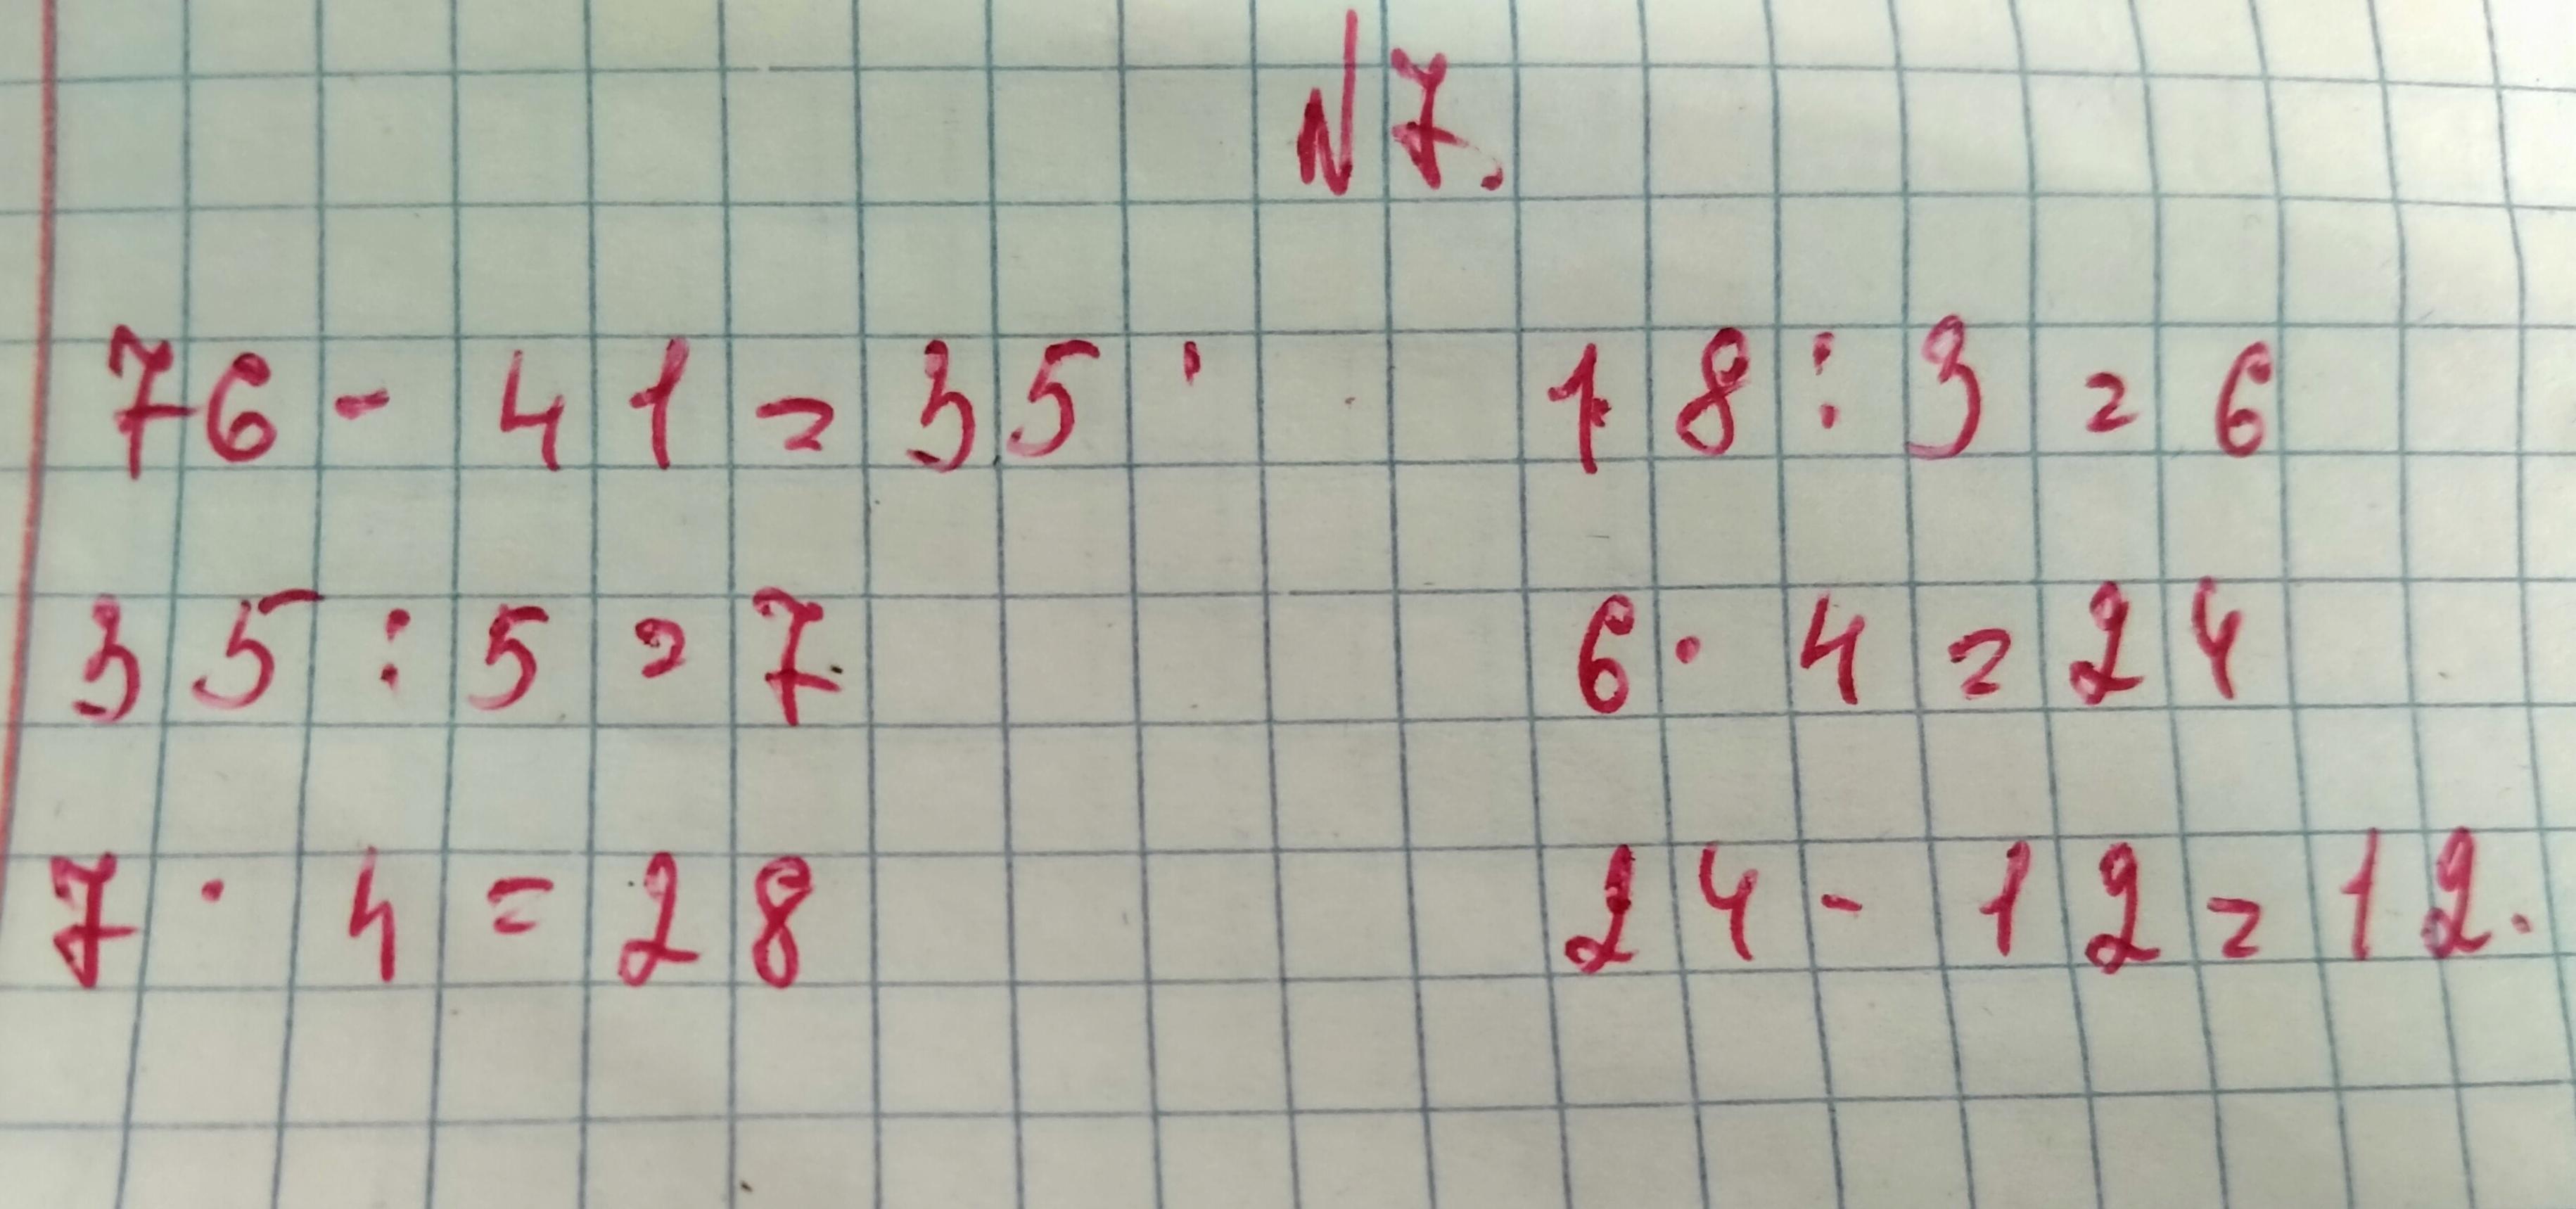 №7.
76 - 41 = 35
18 : 3 = 6
35 : 5 = 7
6 · 4 = 24
7 · 4 = 28
24 - 12 = 12.